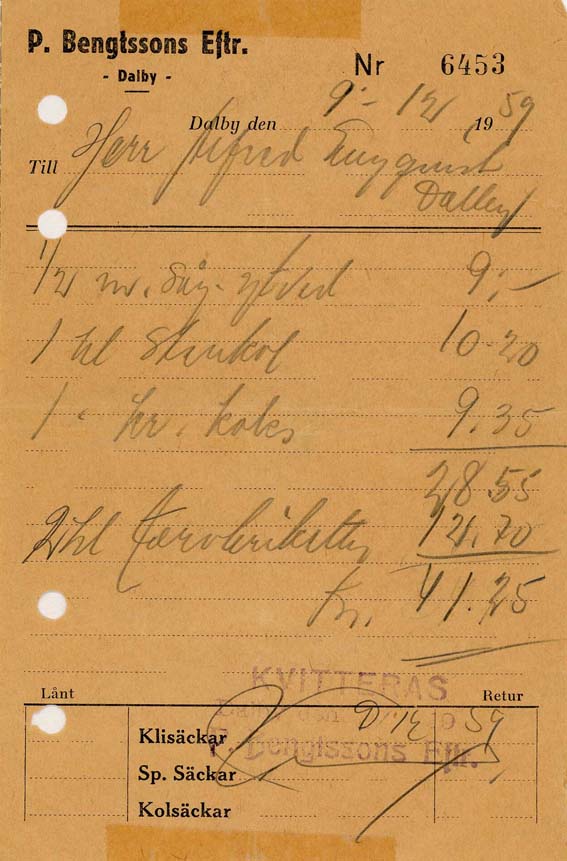 P. Bengtssons Eftr.
- Dalby -
Nr 6453
Dalby den 9/12 1959
Till Herr Alfred Engqvist
Dalby
1/2 m. Såg. ytved 9:-
1 hl Stenkol 10-20
1 " kr. koks 9.35
28.55
2 hl Torvbriketter 12.70
Kr. 41.25
KVITTERAS
Lånt Retur
Dalby den 9/12 1959
Klisäckar P. Bengtssons Eftr.
Sp. Säckar
Kolsäckar